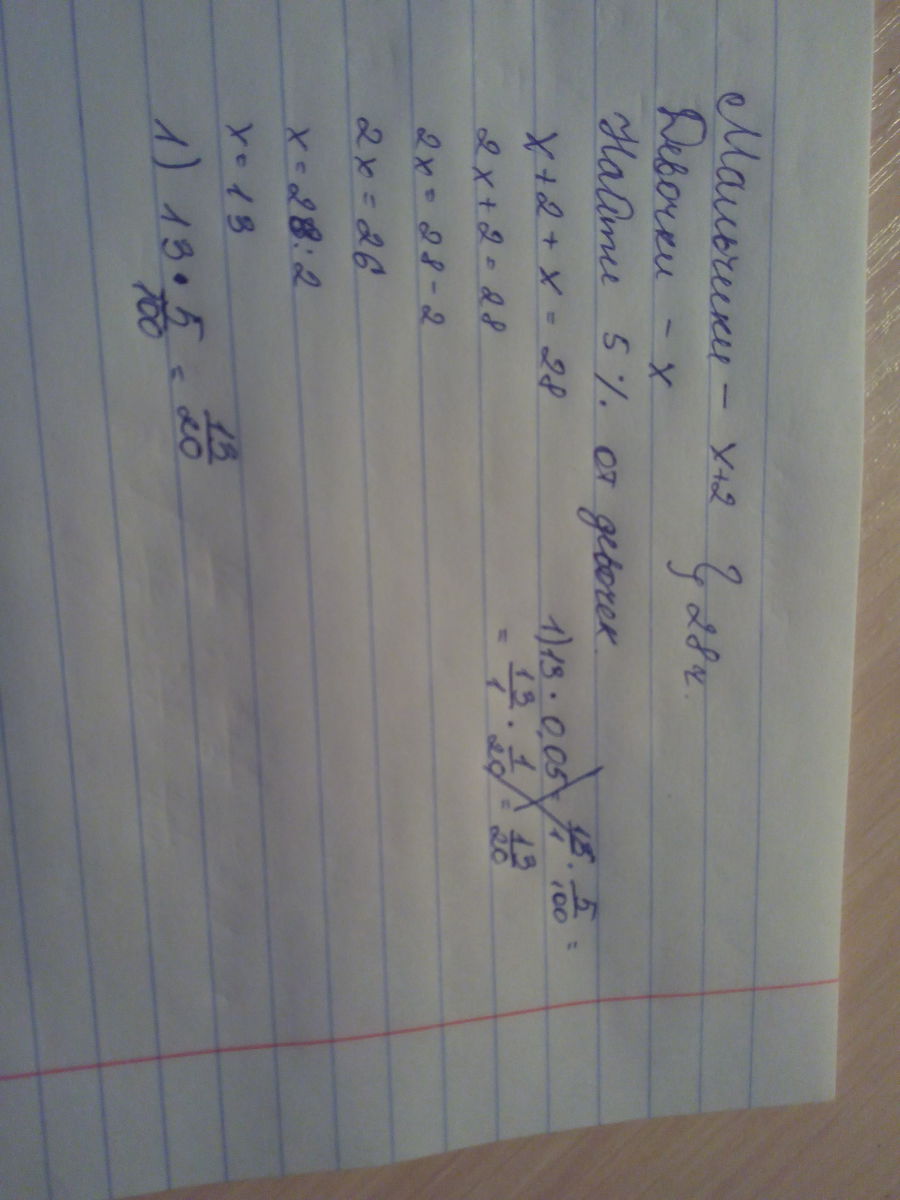 Мальчики - x+2 } 28 ч.
Девочки - x
Найти 5 % от девочек.
x + 2 + x = 28
2x + 2 = 28
2x = 28 - 2
2x = 26
x = 28 : 2
x = 13
1) 13 · 5/100 = 13/20
1) 13 · 0,05 = 13/1 · 5/100 =
= 13/1 · 1/20 = 13/20